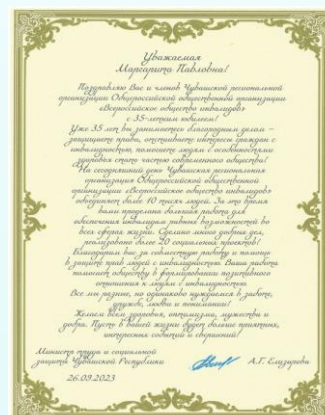 Уважаемая
Маргарита Павловна!
Поздравляю Вас и членов Чувашской региональной
организации Общероссийской общественной организации
«Всероссийское общество инвалидов»
с 35-летним юбилеем!
Уже 35 лет вы занимаетесь благородным делом –
защищаете права, отстаиваете интересы граждан с
инвалидностью, помогаете людям с особенностями
здоровья стать частью современного общества!
На сегодняшний день Чувашская региональная
организация Общероссийской общественной
организации «Всероссийское общество инвалидов»
объединяет более 10 тысяч людей. За это время
вами проделана большая работа для
обеспечения инвалидам равных возможностей во
всех сферах жизни. Сделано много добрых дел,
реализовано более 20 социальных проектов!
Благодарим вас за совместную работу и помощь
в защите прав людей с инвалидностью. Ваша работа
помогает обществу в формировании позитивного
отношения к людям с инвалидностью.
Все мы разные, но одинаково нуждаемся в заботе,
дружбе, любви и понимании!
Желаем всем здоровья, оптимизма, мужества и
добра. Пусть в вашей жизни будет больше приятных,
интересных событий и свершений!
Министр труда и социальной
защиты Чувашской Республики
А.Г. Елизарова
26.09.2023